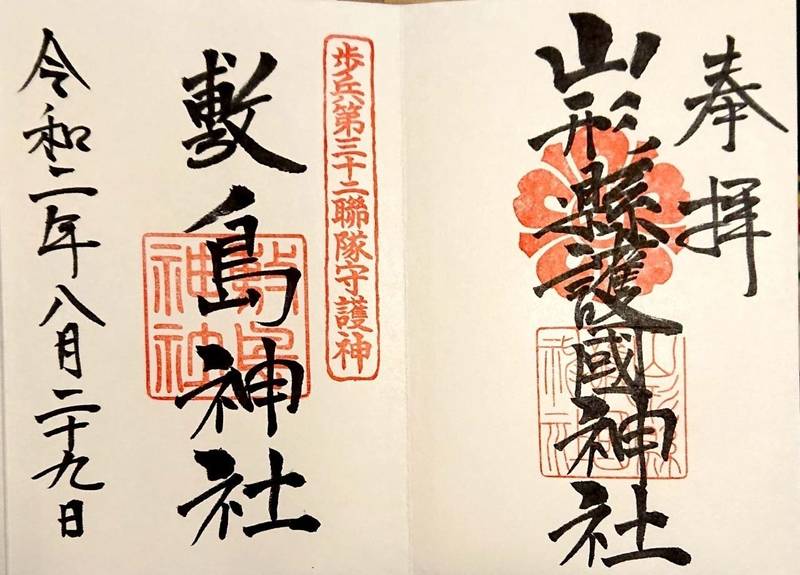 奉拝
山形縣護國神社
歩兵第三十二聯隊守護神
敷島神社
敷島神社
令和二年八月二十九日